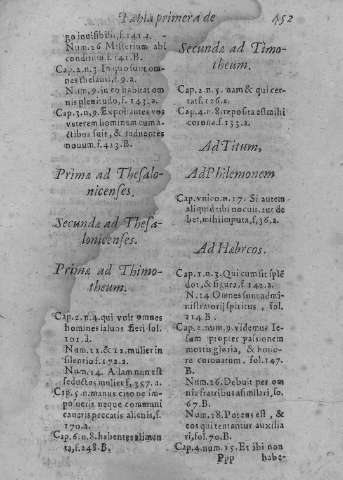 Tabla primera de 452
no invisibili, f. 141. 2.
Num. 26 Misterium abs
conditum f. 141. B.
Cap. 2. n. 3. In quo sunt om-
nes thesauri, f. 9. 2.
Num. 9. in eo habitat om
nis plenitudo, f. 143. 2.
Cap. 3. n. 9. Expoliantes vos
veterem hominem cum a-
ctibus suis, & induentes
nouum. f. 413. B.
Primæ ad Thesalo-
nicenses.
Secundæ ad Thesa-
lonicenses.
Primæ ad Thimo-
theum.
Cap. 2. n. 4. qui vult omnes
homines saluos fieri fol.
101. a.
Num. 11. & 12. mulier in
silentio f. 172. 2.
Num. 14. Adam non est
seductus mulier f. 357. a.
Cap. 5. n. manus cito ne im-
posueris neque communi
caueris peccatis alienis, f.
170. a.
Cap. 6. n. 8. habentes alimen
ta, f. 248. B.
Secundæ ad Timo-
theum.
Cap. 2. n. 5. nam & qui cer-
tat f. 126. 2.
Cap. 4. n. 8 reposita est mihi
corona. f. 133. 2.
Ad Titum,
Ad Philemonem
Cap. vnico. n. 17. Si autem
aliquid tibi nocuit. aut de
bet, mihi imputa, f. 36. 2.
Ad Habreos.
Cap. 1. n. 3. Qui cum sit splē
dor, & figura. f. 142. 2.
N. 14 Omnes sunt admi-
nistratorij spiritus, fol.
114. B.
Cap. 2. num. 9. videmus Ie-
sum propter passionem
mortis gloria, & hono-
re coronatum fol. 147.
B.
Num. 16. Debuit per om
nia fratribus asimilari, fo.
67. B.
Num. 18. Potens est, &
eos qui tentantur auxilia
ri, fol. 70. B.
Cap. 4. num. 15. Et ibi non
Ppp habe-